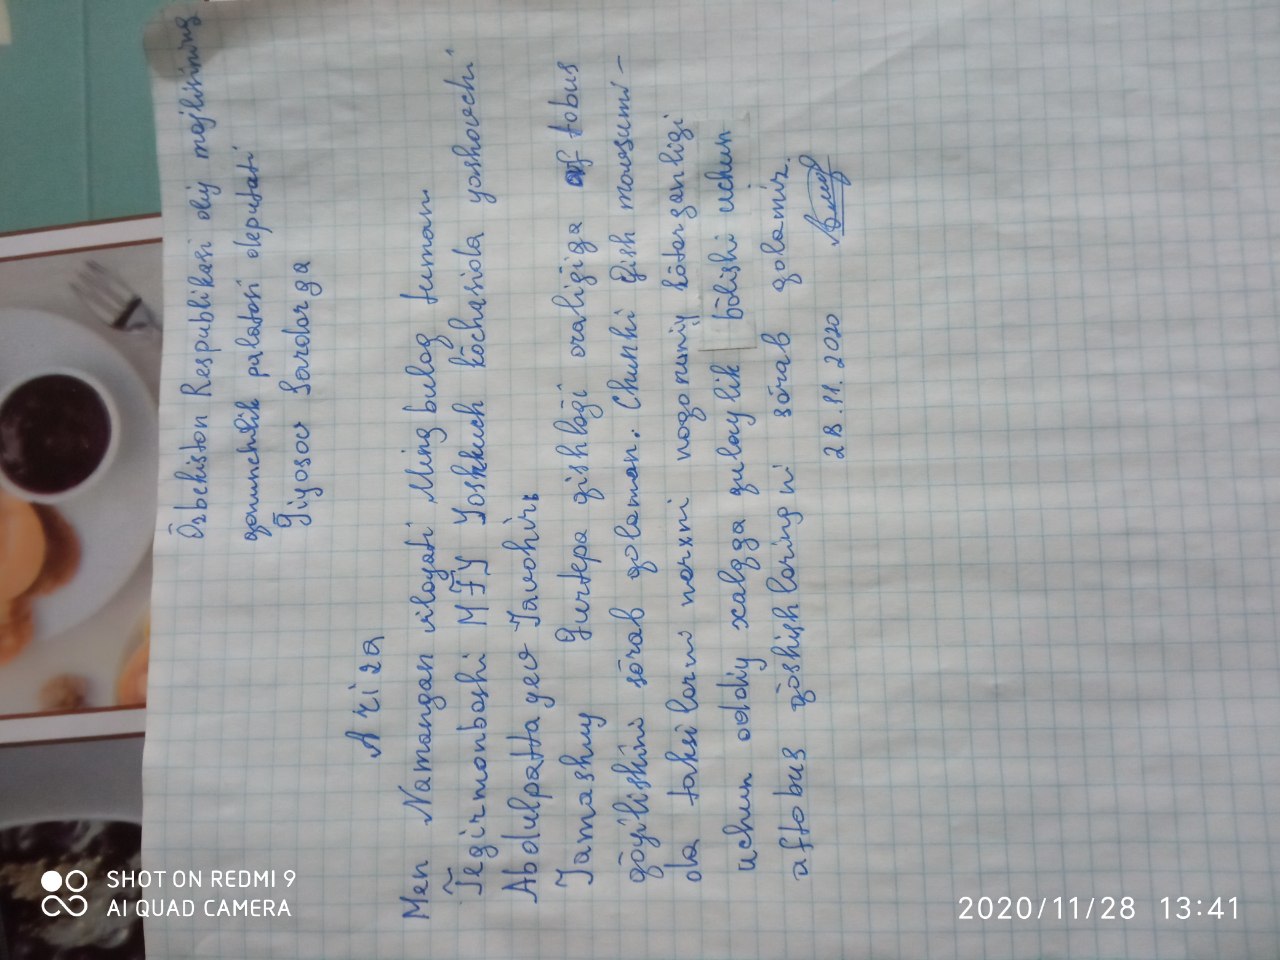 Ōzbekiston Respublikasi oliy majlisining
qonunchilik palatasi deputati
Ģiyosov Sardorga
Ariza
Men Namangan viloyati Mingbuloq tuman
Tegirmonboshi MFY Yoshkuch kōchasida yashovchi
Abdulpattayev Javohir
Jamashuy Gurtepa qishloģi oraliģiga aftobus
qōyilishini sōrab qolaman. Chunki qish mavsumi-
da taksilarni narxni noqonuniy kōtarganligi
uchun oddiy xalqga qulaylik bōlishi uchun
aftobus qōshishlaringni sōrab qolamiz.
28.11.2020
SHOT ON REDMI 9
AI QUAD CAMERA
2020/11/28 13:41